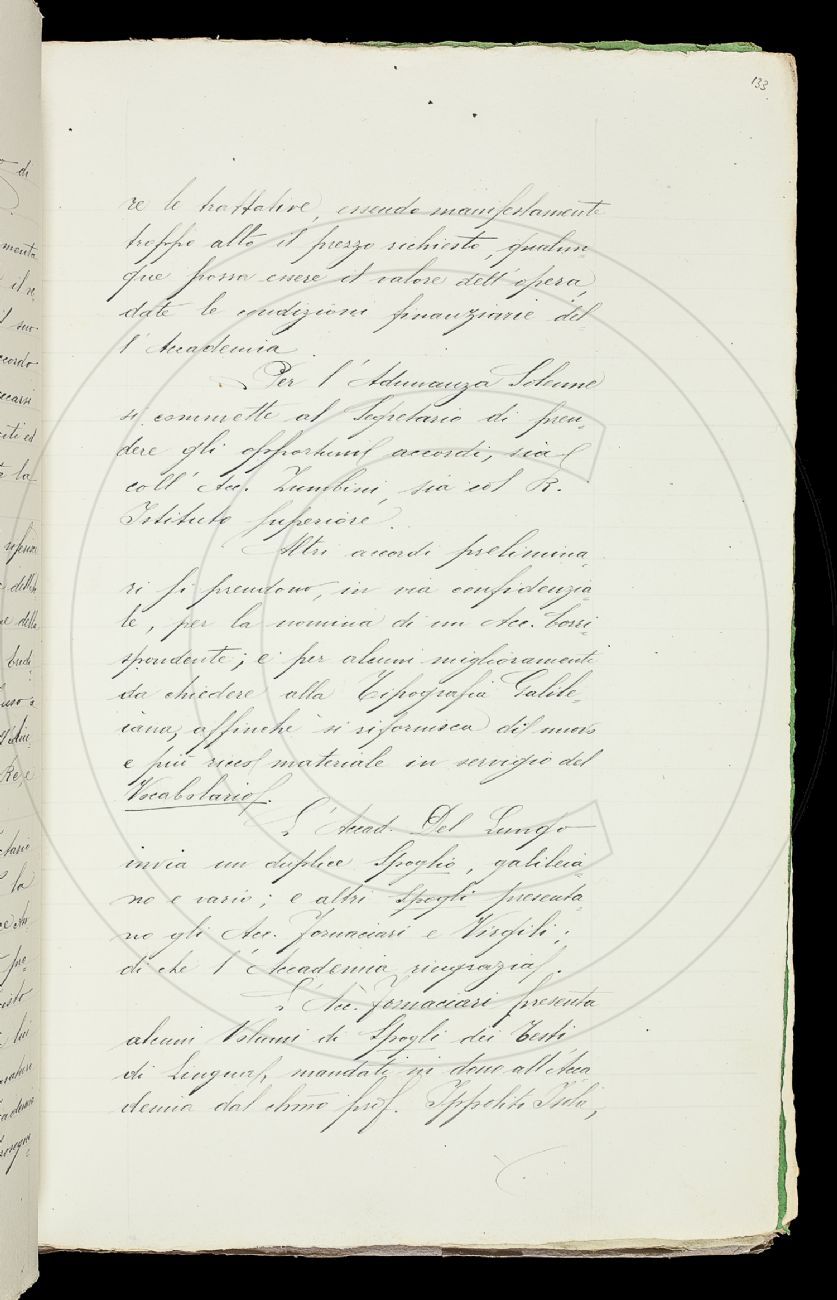 133
re le trattative, essendo manifestamente
troppo alto il prezzo richiesto, qualun-
que possa essere il valore dell'opera,
date le condizioni finanziarie del-
l'Accademia.
Per l'Adunanza Solenne
si commette al Segretario di pren-
dere gli opportuni accordi, sia
coll'Acc. Zumbini, sia col R.
Istituto Superiore.
Altri accordi prelimina-
ri si prendono, in via confidenzia-
le, per la nomina di un Acc. Corri-
spondente; e per alcuni miglioramenti
da chiedere alla Tipografia Galile-
iana, affinchè si rifornisca di nuovo
e più ricco materiale in servigio del
Vocabolario.
L'Accad. Del Lungo
invia un duplice Spoglio, galileia-
no e vario; e altri Spogli presenta-
no gli Acc. Fornaciari e Virgili;
di che l'Accademia ringrazia.
L'Acc. Fornaciari presenta
alcuni Volumi di Spogli dei Testi
di Lingua, mandati in dono all'Acca
demia dal chmo prof. Ippolito
di
menta
il re
accordo
ccarsi
citi ed
la
della
Credi-
Re, e
la
pre-
lui